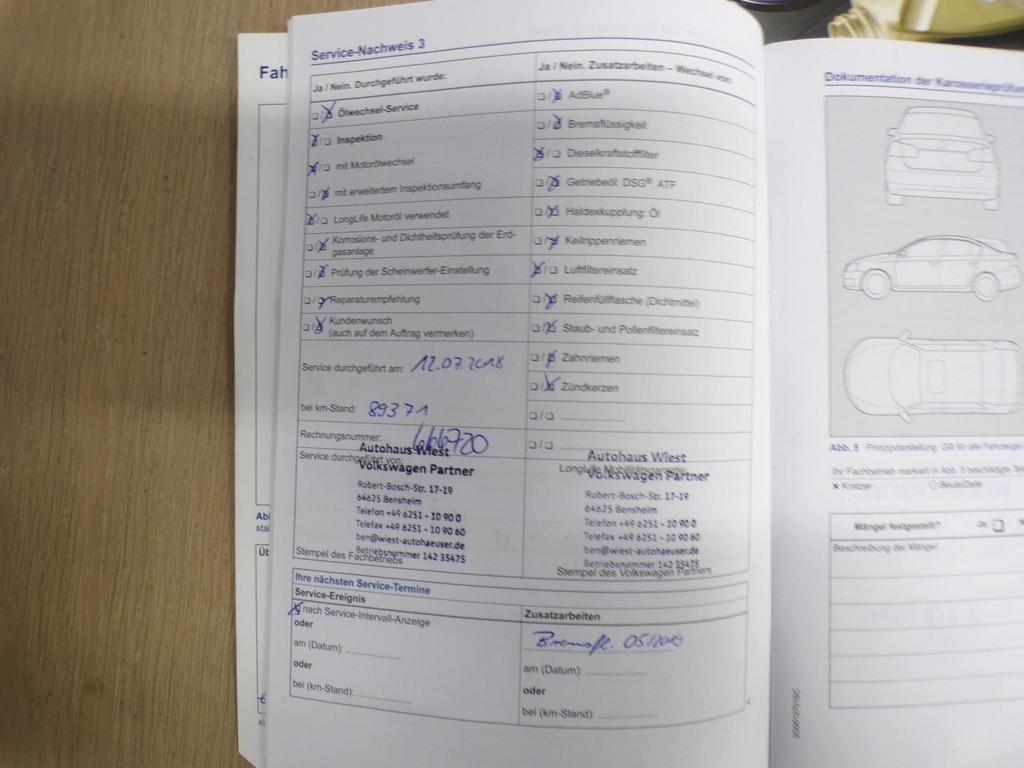 Service-Nachweis 3
Ja / Nein. Durchgeführt wurde:
☐/☒ Ölwechsel-Service
☒/☐ Inspektion
☒/☐ mit Motorölwechsel
☐/☒ mit erweitertem Inspektionsumfang
☒/☐ LongLife Motoröl verwendet
☐/☒ Korrosions- und Dichtheitsprüfung der Erd-
gasanlage
☐/☒ Prüfung der Scheinwerfer-Einstellung
☐/☒ Reparaturempfehlung
☐/☒ Kundenwunsch
(auch auf dem Auftrag vermerken)
Service durchgeführt am: 12.07.2018
bei km-Stand: 89371
Rechnungsnummer: 666720
Service durchgeführt von:
Autohaus Wiest
Volkswagen Partner
Robert-Bosch-Str. 17-19
64625 Bensheim
Telefon +49 6251 - 10 90 0
Telefax +49 6251 - 10 90 60
ben@wiest-autohaeuser.de
Betriebsnummer 142 35475
Stempel des Fachbetriebs
Ja / Nein. Zusatzarbeiten – Wechsel von:
☐/☒ AdBlue®
☐/☒ Bremsflüssigkeit
☒/☐ Dieselkraftstofffilter
☐/☒ Getriebeöl: DSG®, ATF
☐/☒ Haldexkupplung: Öl
☐/☒ Keilrippenriemen
☒/☐ Luftfiltereinsatz
☐/☒ Reifenfüllflasche (Dichtmittel)
☐/☒ Staub- und Pollenfiltereinsatz
☐/☒ Zahnriemen
☐/☒ Zündkerzen
☐/☐
☐/☐
Autohaus Wiest
Volkswagen Partner
Robert-Bosch-Str. 17-19
64625 Bensheim
Telefon +49 6251 - 10 90 0
Telefax +49 6251 - 10 90 60
ben@wiest-autohaeuser.de
Betriebsnummer 142 35475
Stempel des Volkswagen Partners
Ihre nächsten Service-Termine
Service-Ereignis
☒ nach Service-Intervall-Anzeige
oder
am (Datum):
oder
bei (km-Stand):
Zusatzarbeiten
Bremsfl. 05/2019
am (Datum):
oder
bei (km-Stand):
Fah
Dokumentation der Karosserieprüfun
Abb. 5 Prinzipdarstellung: Gilt für alle Fahrzeuge
Ihr Fachbetrieb markiert in Abb. 5 beschädigte Te
× Kratzer ○ Beule/Delle
Mängel festgestellt? Ja: ☐
Beschreibung der Mängel: